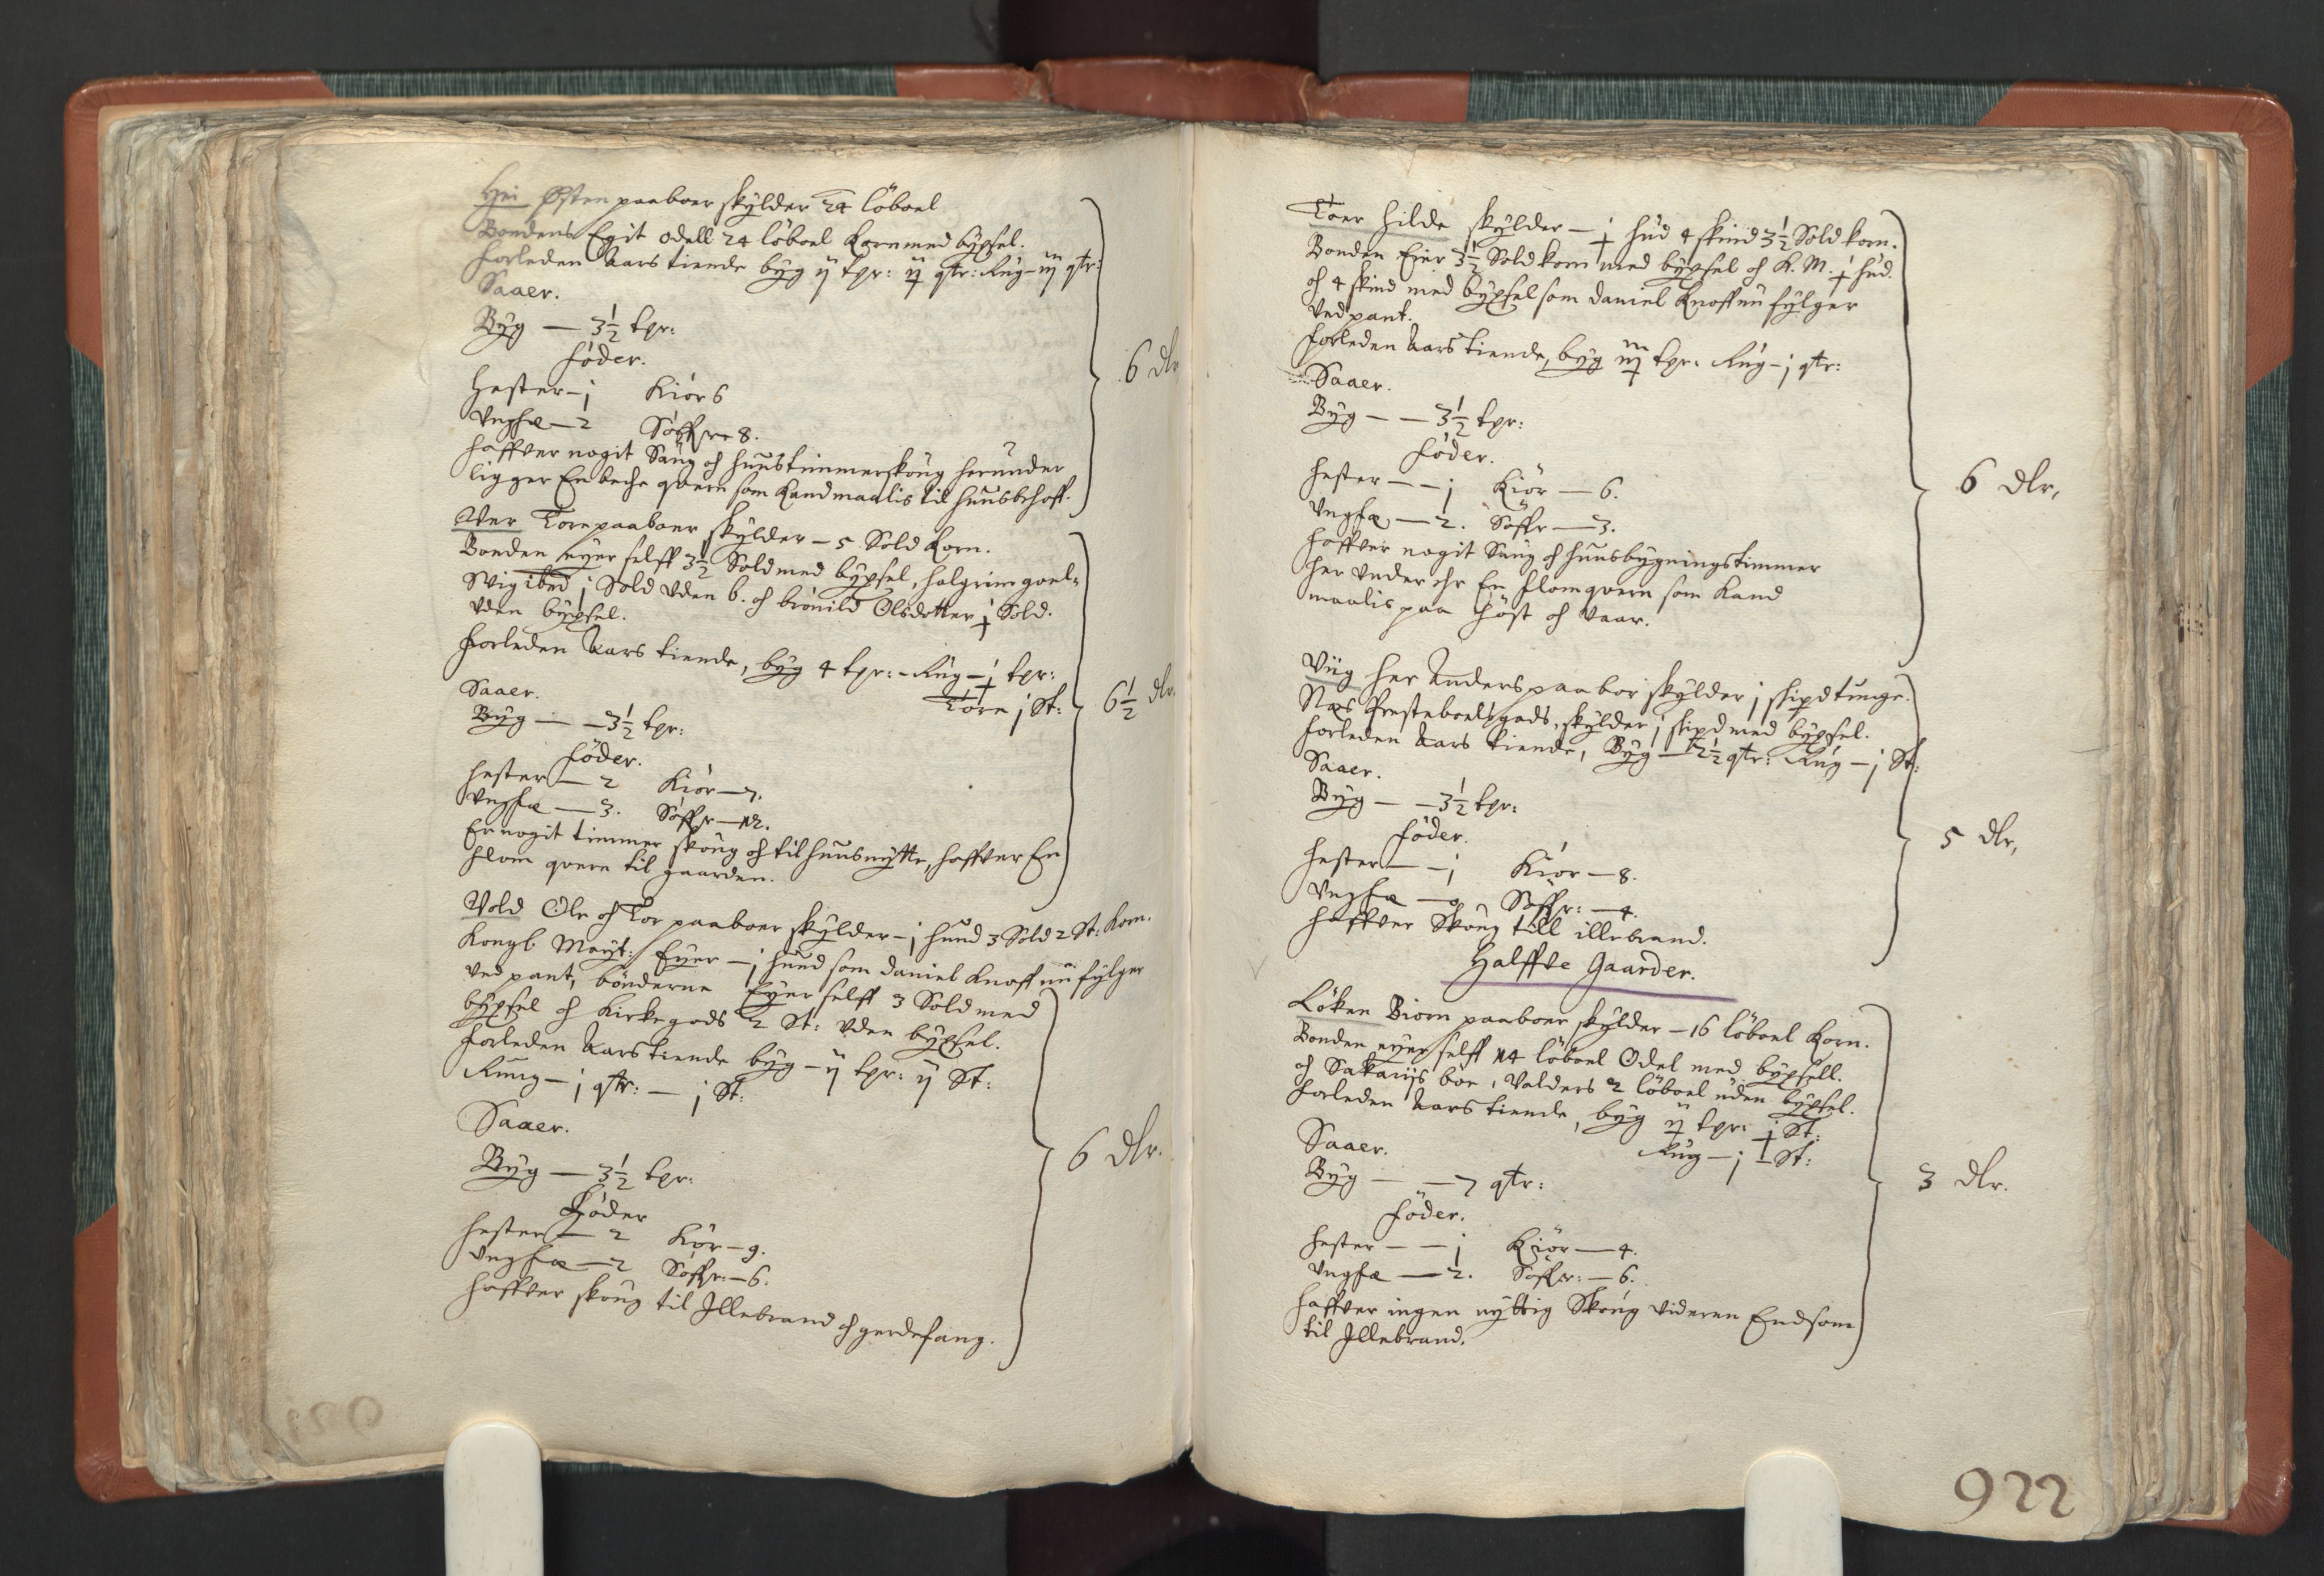 Hei Østen paaboer skÿlder 24 löboel
Bondens Egit odell 24 löboel Korn med bÿxsel.
forleden Aars tiende bÿg ÿ tpr: ÿ qtr: Rug – iij qtr:
Saaer.
Bÿg — 3½ tpr:
föder.
hester – j Kiör 6
Ungfæ — 2 Söffr 8.
haffver nogit Saug och huustimmerskoug herunder
ligger En beche qvern som Kand maalis til huusbehoff.
6 dlr
Ver Tore paaboer skÿlder – 5 Sold Korn.
Bonden eÿer selff 3½ Sold med bÿxsel, halgrim goel-
Wig ibed j Sold uden b. och brönild Olsdotter j Sold.
uden bÿxsel.
forleden Aars tiende, bÿg 4 tpr: – Rug – j tpr:
Tore j St:
Saaer.
Bÿg — – 3½ tpr:
föder.
hester — 2 Kiör — 7.
Ungfæ — 3. Söffr — 12.
Er nogit timmer skoug och til huusnÿtte, haffver En
flom qvern til gaarden.
6½ dlr.
Vold Ole och Tor paaboer skÿlder – j huud 3 Sold 2 St: Korn.
Kongl. Maÿt: Eÿer – j huud som daniel Knoff nu fÿlger
ved pant, bönderne Eÿer selff 3 Sold med
bÿxsel och Kirkegods 2 St: uden bÿxsel.
forleden Aars tiende bÿg – ÿ tpr: ÿ St:
Ruug – j qtr: — j St:
Saaer.
Bÿg — 3½ tpr:
Föder
hester — 2 Kör – 9.
Ungfæ — 2 Söffr: – 6.
haffver skoug til Jllebrand och gerdefang.
6 dlr.
Toer hilde skÿlder – j hud 4 skind 3½ Sold korn.
Bonden Eier 3½ Sold korn med bÿxsel och K. M. j hud.
och 4 skind med bÿxsel som daniel Knoff nu fÿlger
ved pant.
forleden Aars tiende, bÿg iij tpr: Rug – j qtr:
Saaer.
Bÿg – – 3½ tpr:
föder.
hester — – j Kiör — 6.
Ungfæ — 2. Söffr — 3.
haffver nogit Saug och huusbÿgningstimmer
her under ehr En flomqvern som Kand
maalis paa höst och vaar.
6 dlr,
Viig her Anders paabor skÿlder j skipd tunge.
Næs Prestebolsgods, skÿlder j skipd med bÿxsel.
forleden Aars tiende, Bÿg — 2½ qtr: Rug – j St:
Saaer.
Bÿg – – 3½ tpr:
föder.
hester — – j Kiör — 8.
Ungfæ — Söffr: — 4.
haffver Skoug till illebrand.
5 dlr,
Halffve Gaarder.
Löken Biorn paaboer skÿlder – 16 löboel Korn.
Bonden eÿer selff 14 löboel Odel med bÿxsell.
och Sakariis boe, Valders 2 löboel uden bÿxsel.
forleden Aars tiende, bÿg ÿ tpr: j St:
Rug – j St:
Saaer.
Bÿg — — 7 qtr:
föder.
hester — – j Kiör — 4.
Ungfæ — 2. Söffr: — 6.
haffver ingen nÿttig Skoug videren End som
til Jllebrand.
3 dlr.
922